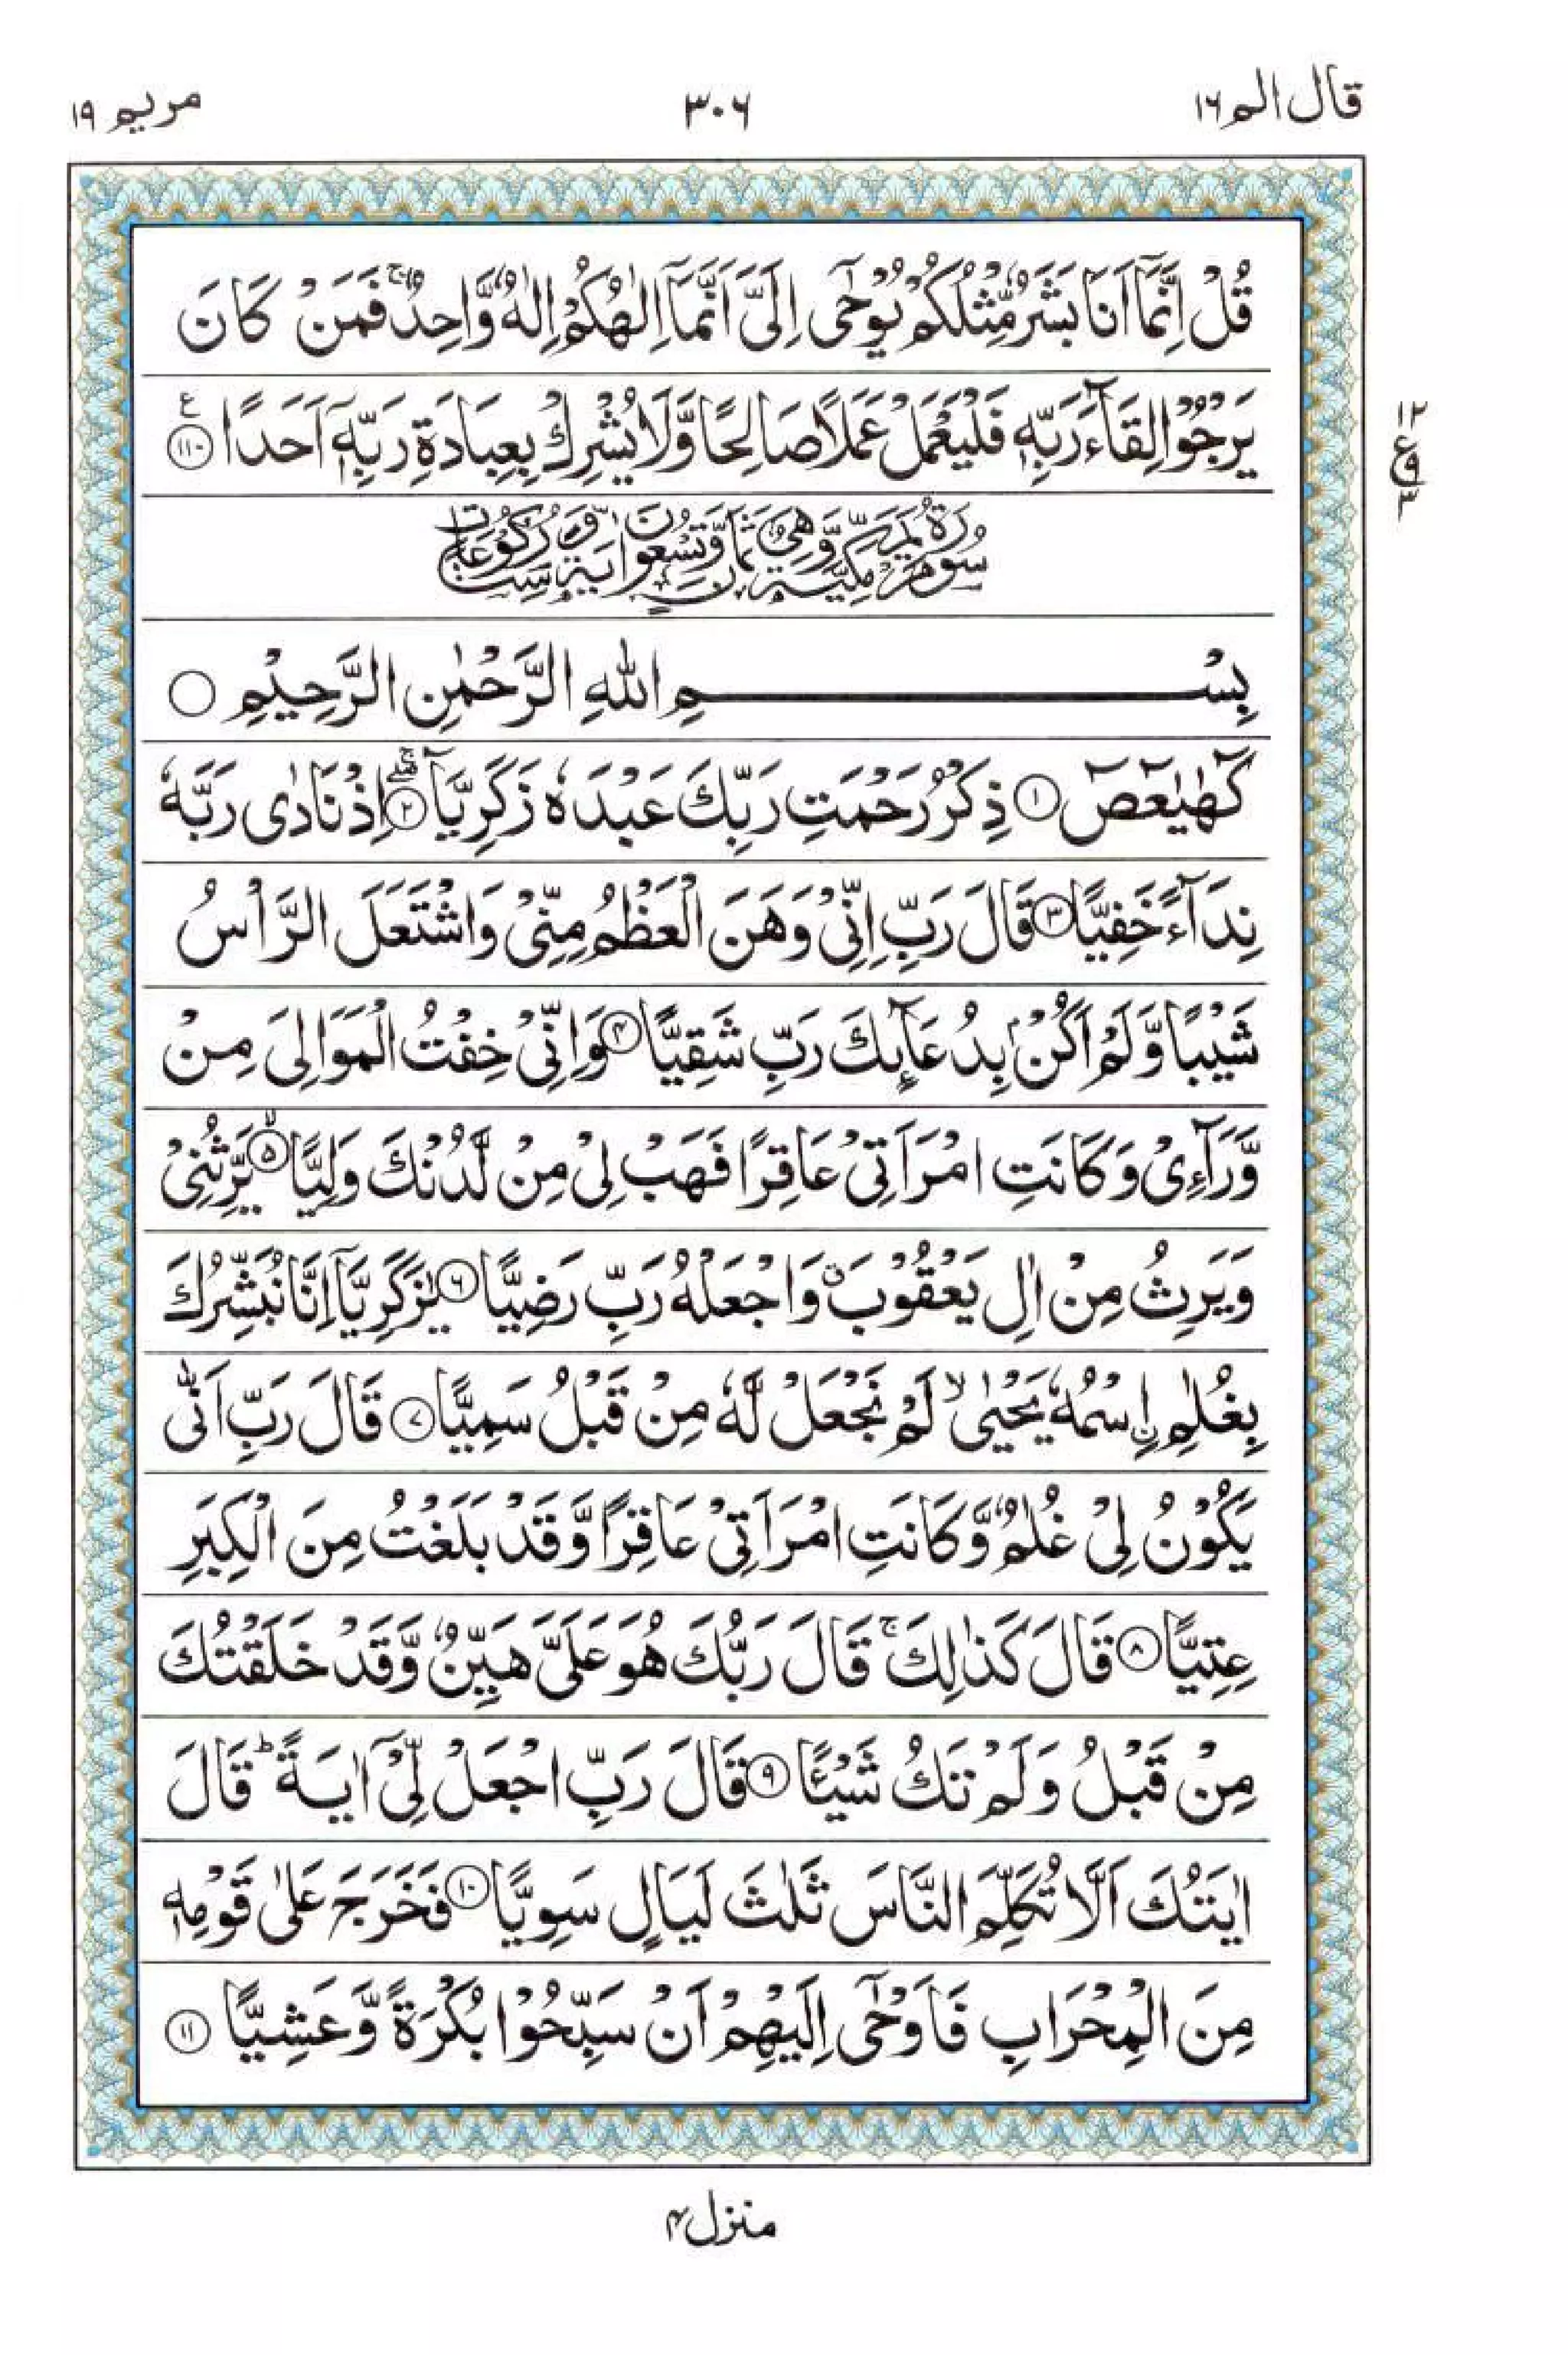 قال الم ١٦
٣٠٦
مريم ١٩
قُلْ اِنَّمَآ اَنَا بَشَرٌ مِّثْلُكُمْ يُوْحٰٓى اِلَىَّ اَنَّمَآ اِلٰهُكُمْ اِلٰهٌ وَّاحِدٌ ۚ فَمَنْ كَانَ
يَرْجُوْا لِقَآءَ رَبِّهٖ فَلْيَعْمَلْ عَمَلًا صَالِحًا وَّلَا يُشْرِكْ بِعِبَادَةِ رَبِّهٖٓ اَحَدًا ﴿١١٠﴾ ع
١٢
ع
٩
٣
سُوْرَةُ مَرْيَمَ مَكِّيَّةٌ وَّهِىَ ثَمَانٍ وَّتِسْعُوْنَ اٰيَةً وَّسِتُّ رُكُوْعَاتٍ
بِسْمِ اللّٰهِ الرَّحْمٰنِ الرَّحِيْمِ ○
كٓهٰيٰعٓصٓ ﴿١﴾ ذِكْرُ رَحْمَتِ رَبِّكَ عَبْدَهٗ زَكَرِيَّا ۖۚ ﴿٢﴾ اِذْ نَادٰى رَبَّهٗ
نِدَآءً خَفِيًّا ﴿٣﴾ قَالَ رَبِّ اِنِّىْ وَهَنَ الْعَظْمُ مِنِّىْ وَاشْتَعَلَ الرَّاْسُ
شَيْبًا وَّلَمْ اَكُنْۢ بِدُعَآئِكَ رَبِّ شَقِيًّا ﴿٤﴾ وَاِنِّىْ خِفْتُ الْمَوَالِىَ مِنْ
وَّرَآءِىْ وَكَانَتِ امْرَاَتِىْ عَاقِرًا فَهَبْ لِىْ مِنْ لَّدُنْكَ وَلِيًّا ۙ ﴿٥﴾ يَّرِثُنِىْ
وَيَرِثُ مِنْ اٰلِ يَعْقُوْبَ ۖ وَاجْعَلْهُ رَبِّ رَضِيًّا ﴿٦﴾ يٰزَكَرِيَّآ اِنَّا نُبَشِّرُكَ
بِغُلٰمِ ۨاسْمُهٗ يَحْيٰى ۙ لَمْ نَجْعَلْ لَّهٗ مِنْ قَبْلُ سَمِيًّا ﴿٧﴾ قَالَ رَبِّ اَنّٰى
يَكُوْنُ لِىْ غُلٰمٌ وَّكَانَتِ امْرَاَتِىْ عَاقِرًا وَّقَدْ بَلَغْتُ مِنَ الْكِبَرِ
عِتِيًّا ﴿٨﴾ قَالَ كَذٰلِكَ ۚ قَالَ رَبُّكَ هُوَ عَلَىَّ هَيِّنٌ وَّقَدْ خَلَقْتُكَ
مِنْ قَبْلُ وَلَمْ تَكُ شَيْئًا ﴿٩﴾ قَالَ رَبِّ اجْعَلْ لِّىْٓ اٰيَةً ؕ قَالَ
اٰيَتُكَ اَلَّا تُكَلِّمَ النَّاسَ ثَلٰثَ لَيَالٍ سَوِيًّا ﴿١٠﴾ فَخَرَجَ عَلٰى قَوْمِهٖ
مِنَ الْمِحْرَابِ فَاَوْحٰٓى اِلَيْهِمْ اَنْ سَبِّحُوْا بُكْرَةً وَّعَشِيًّا ﴿١١﴾
منزل ٤